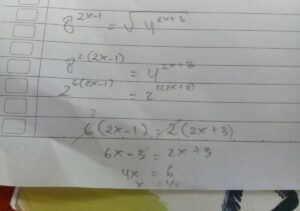 8^{2x-1} = √4^{2x+3}
8^{2(2x-1)} = 4^{2x+3}
2^{6(2x-1)} = 2^{2(2x+3)}
6(2x-1) = 2(2x+3)
6x - 3 = 2x + 3
4x = 6